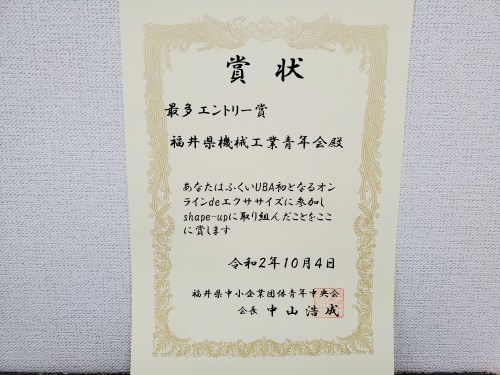 賞状
最多エントリー賞
福井県機械工業青年会殿
あなたはふくいUBA初となるオン
ラインdeエクササイズに参加し
shape-upに取り組んだことをここ
に賞します
令和2年10月4日
福井県中小企業団体青年中央会
会長 中山浩成